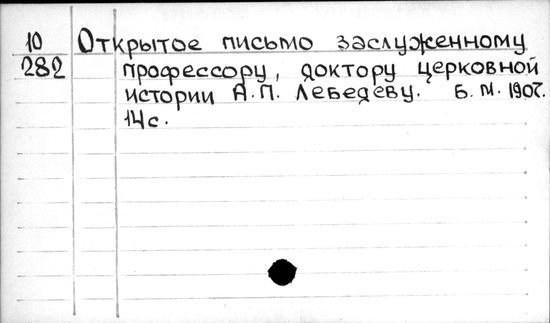 10 Открытое письмо заслуженному
282 профессору, доктору церковной
истории А.П. Лебедеву. Б.М. 1907.
14с.